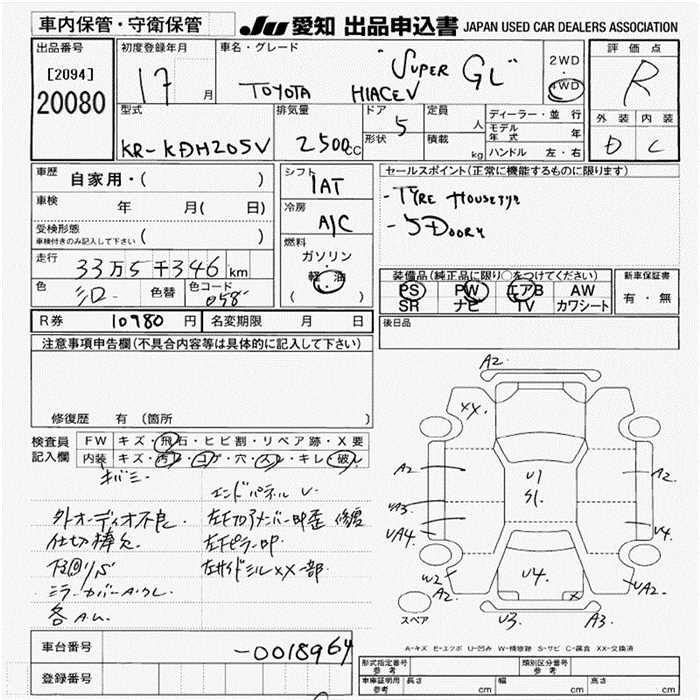 車内保管・守衛保管
JU 愛知 出品申込書 JAPAN USED CAR DEALERS ASSOCIATION
出品番号
[2094]
20080
初度登録年月
17 月
車名・グレード
"SUPER GL"
TOYOTA HIACEV
2WD
・
4WD
評価点
R
外装 内装
D C
型式
KR-KDH205V
排気量
2500cc
ドア 5
形状
定員 人
積載 kg
ディーラー・並行
モデル年式 年
ハンドル 左・右
車歴 自家用・( )
車検 年 月( 日)
受検形態
車検付きのみ記入して下さい ( )
走行 33万5千346km
色 シロ 色替 色コード 058
シフト
1AT
冷房
A/C
燃料
ガソリン
軽・油
( )
セールスポイント(正常に機能するものに限ります)
- 5DOOR
装備品(純正品に限り○をつけてください)
PS PW エアB AW
SR ナビ TV カワシート
新車保証書
有・無
R券 10980円 名変期限 月 日
後日品
注意事項申告欄(不具合内容等は具体的に記入して下さい)
修復歴 有(箇所
検査員記入欄
FW キズ・飛石・ヒビ割・リペア跡・X要
内装 キズ・汚レ・コゲ・穴・スレ・キレ・破レ
キバミ
エンドパネル U
外オーディオ不良
仕切棒欠
ミラーカバーA・ワレ
各A.U.
左サイドミルXX一部
A2
XX
A2
UA3
UA4
U2
A2
U1
S1
U4
X
A2
U4
UA2
U3
A3
スペア
A-キズ E-エクボ U-凹み W-補修跡 S-サビ C-腐食 XX-交換済
車台番号 -0018964
登録番号
形式指定番号
参考
類別区分番号
参考
車庫証明用
参考
長さ cm
幅 cm
高さ cm